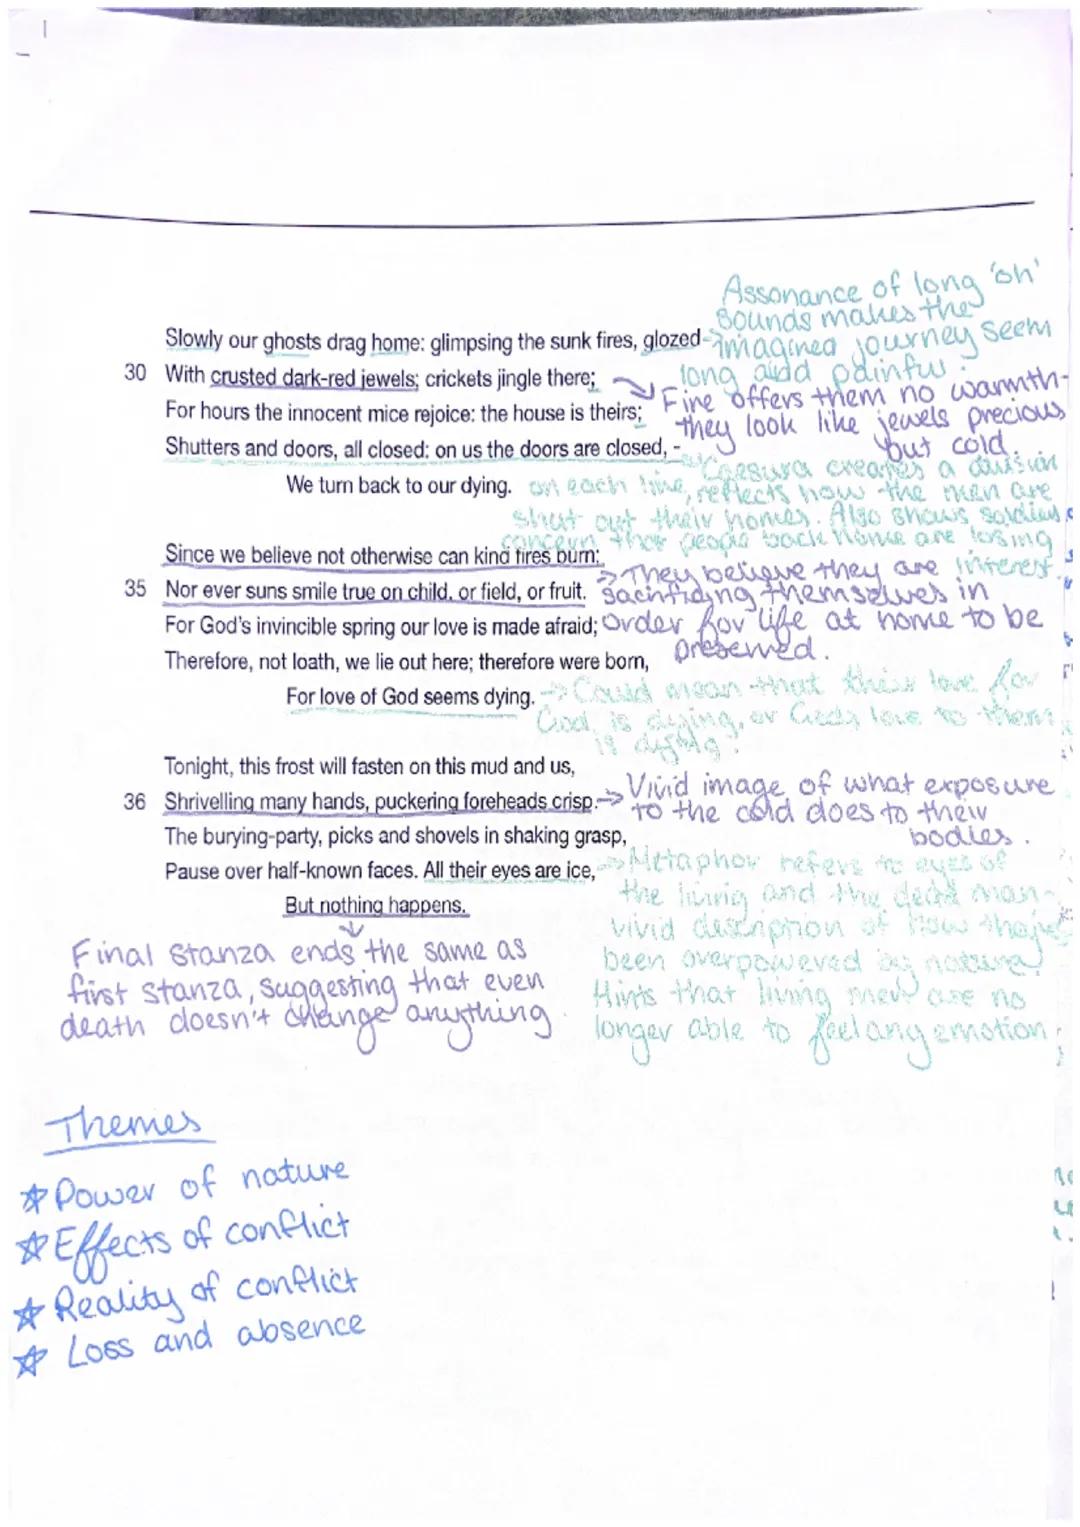 Assonance of long 'oh'
sounds makes the
Slowly our ghosts drag home: glimpsing the sunk fires, glozed
imagined journey seem
long and painful.
30 With crusted dark-red jewels; crickets jingle there;
Fire offers them no warmth-
For hours the innocent mice rejoice: the house is theirs;
they look like jewels precious
but cold.
Shutters and doors, all closed: on us the doors are closed, -
Caesura creates a division
We turn back to our dying.
on each line, reflects how the men are
shut out their homes. Also shows soldiers
concern that people back home are losing
interest.
Since we believe not otherwise can kind fires burn;
They believe they are
35 Nor ever suns smile true on child, or field, or fruit.
sacrificing themselves in
For God's invincible spring our love is made afraid;
order for life at home to be
preserved.
Therefore, not loath, we lie out here; therefore were born,
For love of God seems dying.
Could mean that their love for
God is dying, or God's love to them
is dying.
Tonight, this frost will fasten on this mud and us,
36 Shrivelling many hands, puckering foreheads crisp.
Vivid image of what exposure
to the cold does to their
bodies.
The burying-party, picks and shovels in shaking grasp,
Pause over half-known faces. All their eyes are ice,
Metaphor refers to eyes of
the living and the dead man-
vivid description of how they've
been overpowered by nature
Hints that living men are no
longer able to feel any emotion
But nothing happens.
Final stanza ends the same as
first stanza, suggesting that even
death doesn't change anything.
Themes
Power of nature
Effects of conflict
Reality of conflict
Loss and absence